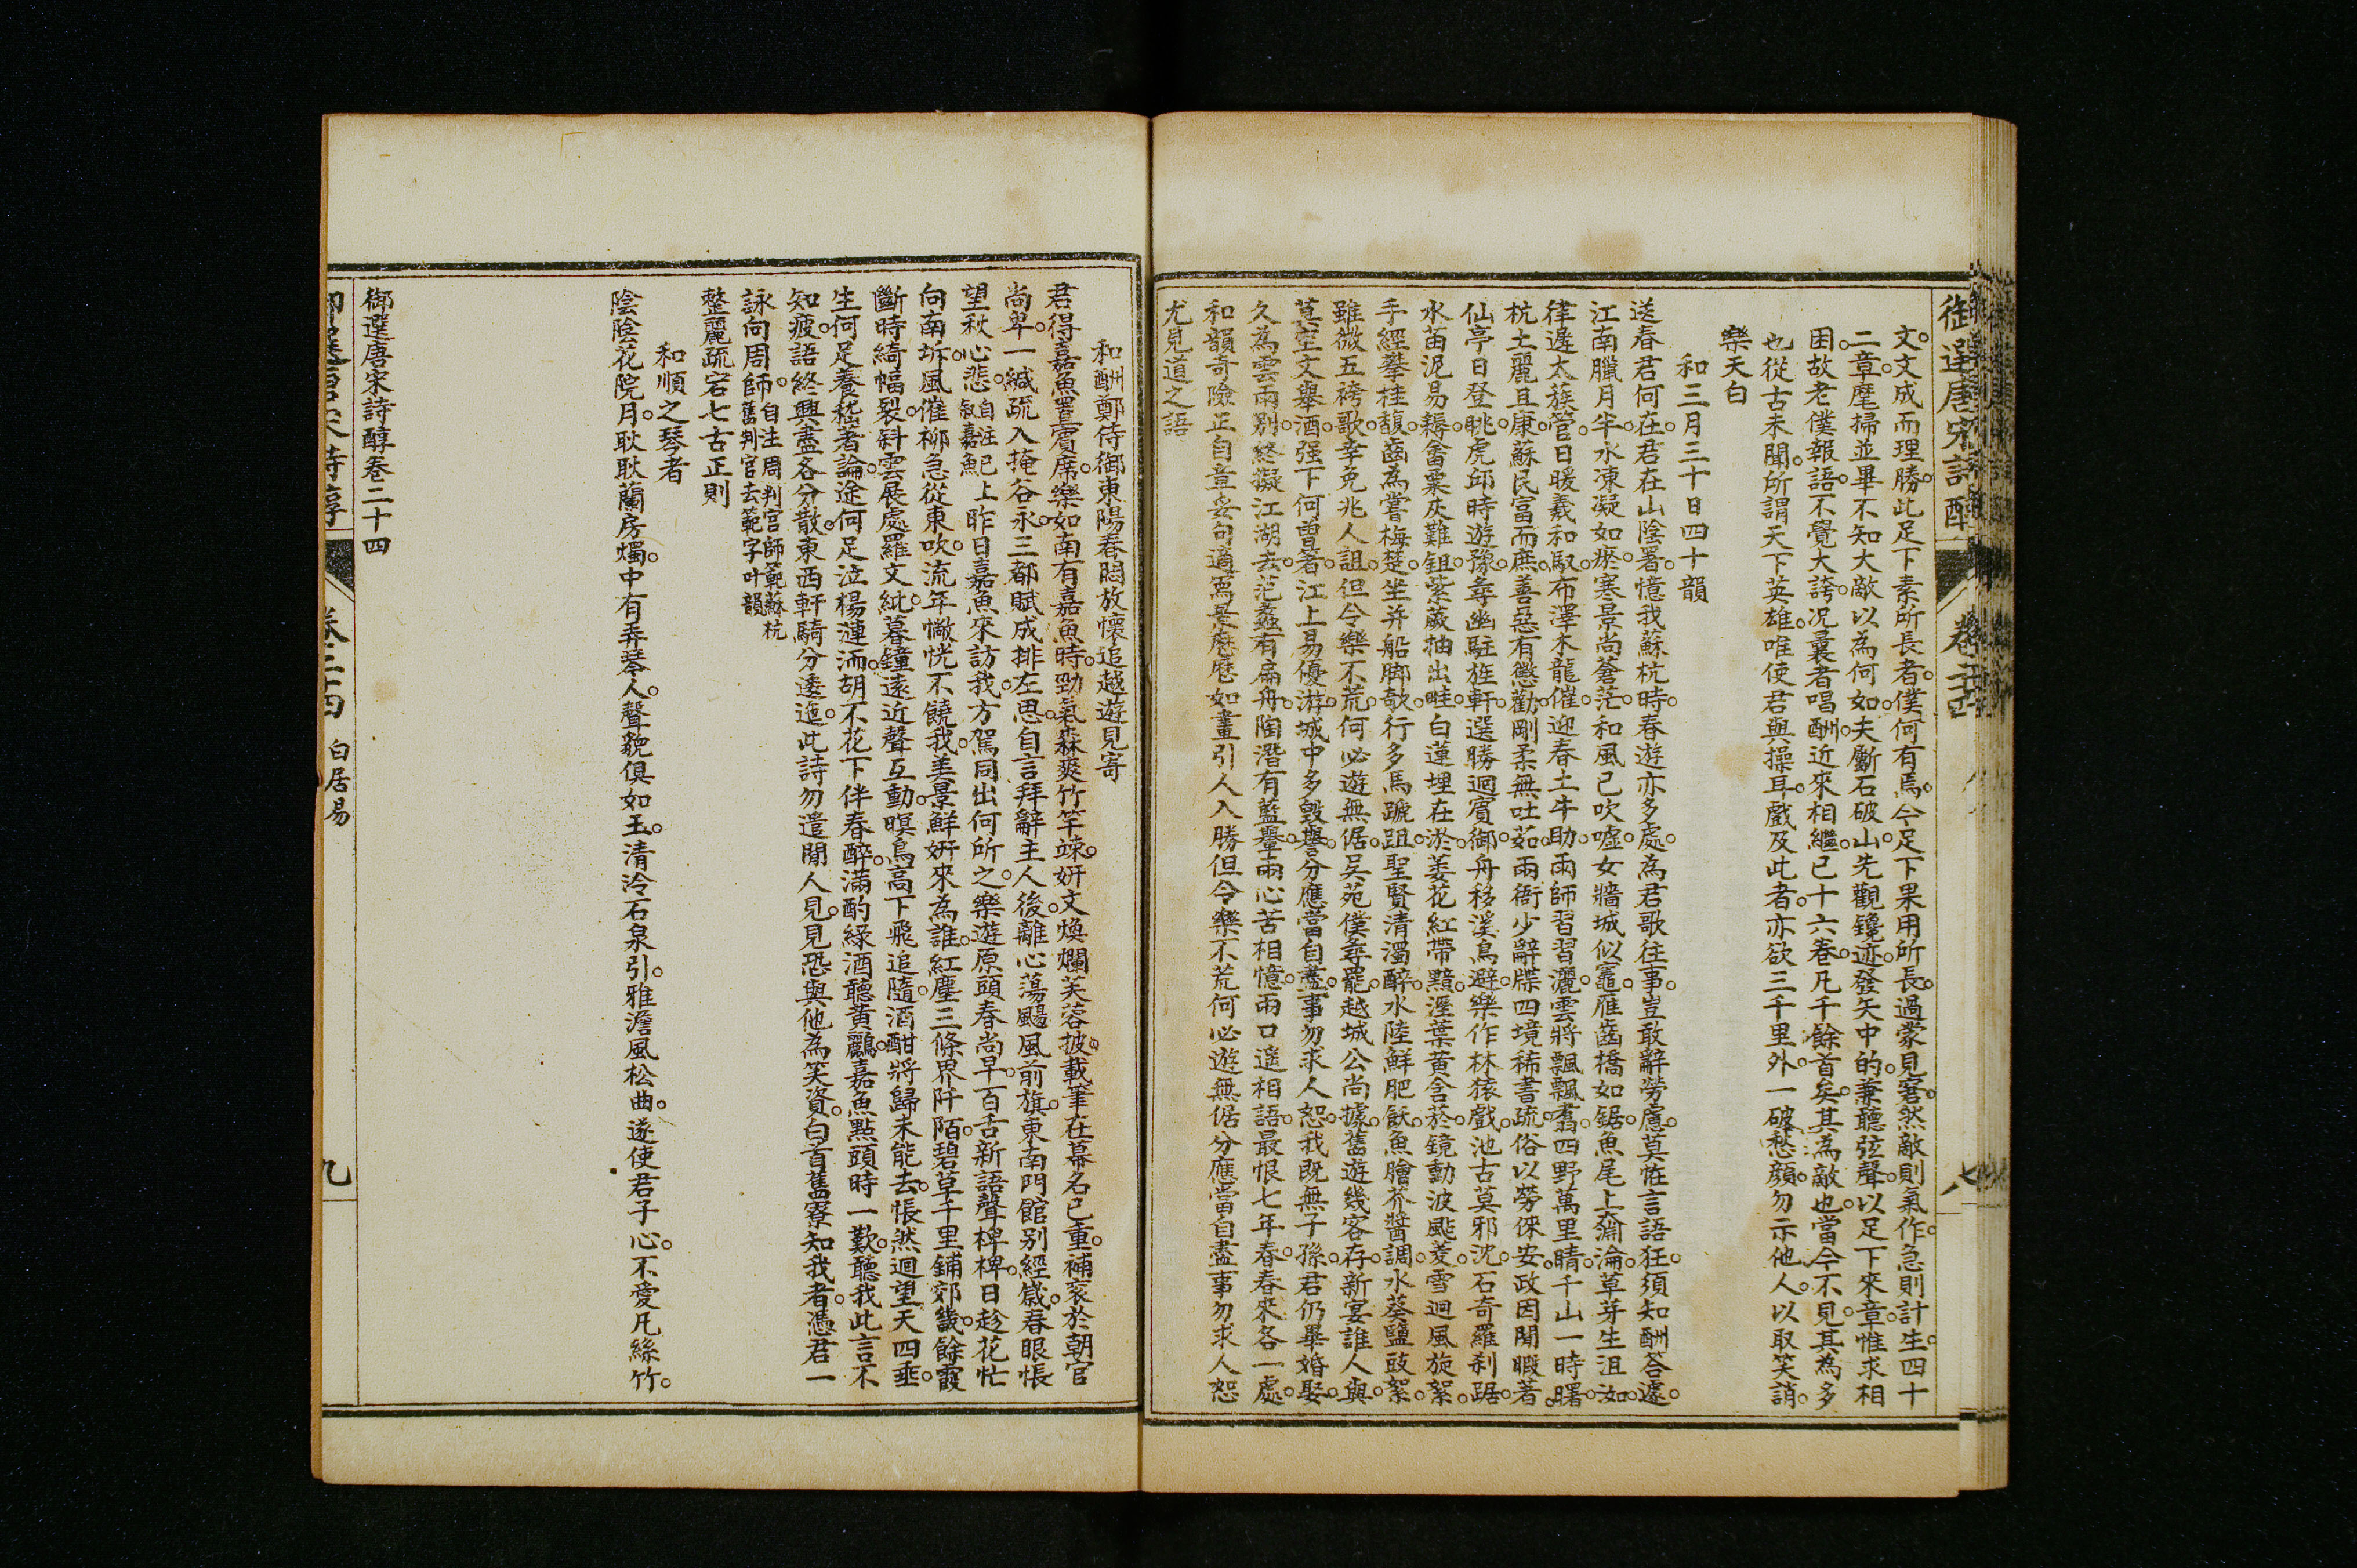 御選唐宋詩醇
卷二十四
八
文文成而理勝此足下素所長者僕何有焉今足下果用所長過蒙見窘然敵則氣作急則計生四十
二章麾掃並畢不知大敵以為何如夫斸石破山先觀鑱迹發矢中的兼聽弦聲以足下來章惟求相
困故老僕報語不覺大誇况曩者唱酬近來相繼已十六卷凡千餘首矣其為敵也當今不見其為多
也從古未聞所謂天下英雄唯使君與操耳戲及此者亦欲三千里外一破愁顔勿示他人以取笑誚
樂天白
和三月三十日四十韻
送春君何在君在山陰署憶我蘇杭時春遊亦多處為君歌往事豈敢辭勞慮莫恠言語狂須知酬答遽
江南臘月半水凍凝如瘀寒景尚蒼茫和風已吹噓女牆城似竈雁齒橋如鋸魚尾上奫淪草芽生沮洳
律遲太蔟管日暖羲和馭布澤木龍催迎春土牛助雨師習習灑雲將飄飄翥四野萬里晴千山一時曙
杭土麗且康蘇民富而庶善惡有懲勸剛柔無吐茹兩衙少辭牒四境稀書疏俗以勞倈安政因閒暇著
仙亭日登眺虎邱時遊豫尋幽駐旌軒選勝迴賓御舟移溪鳥避樂作林猿戲池古莫邪沈石奇羅刹踞
水苗泥易耨畬粟灰難鉏紫蕨抽出畦白蓮埋在淤萎花紅帶黯溼葉黃含菸鏡動波颭菱雪迴風旋絮
手經攀桂馥齒為嘗梅楚坐并船脚欹行多馬蹄跙聖賢清濁醉水陸鮮肥飫魚膾芥醬調水葵鹽豉絮
雖微五袴歌幸免兆人詛但令樂不荒何必遊無倨吳苑僕尋罷越城公尚據舊遊幾客存新宴誰人與
莫空文舉酒强下何曾箸江上易優游城中多毀譽分應當自盡事勿求人恕我既無子孫君仍畢婚娶
久為雲雨別終擬江湖去范蠡有扁舟陶潛有藍轝兩心苦相憶兩口遙相語最恨七年春春來各一處
和韻奇險正自章妥句適寫景歷歷如畫引人入勝但令樂不荒何必遊無倨分應當自盡事勿求人恕
尤見道之語
和酬鄭侍御東陽春悶放懷追越遊見寄
君得嘉魚置賓席樂如南有嘉魚時勁氣森爽竹竿竦妍文煥爛芙蓉披載筆在幕名已重補衮於朝官
尚卑一緘疏入掩谷永三都賦成排左思自言拜辭主人後離心蕩颺風前旗東南門館别經歲春眼悵
望秋心悲自注已上叙嘉魚昨日嘉魚來訪我方駕同出何所之樂遊原頭春尚早百舌新語聲椑椑日趁花忙
向南坼風催柳急從東吹流年懺恍不饒我美景鮮妍來為誰紅塵三條界阡陌碧草千里鋪郊畿餘霞
斷時綺幅裂斜雲展處羅文紕暮鐘遠近聲互動暝鳥高下飛追隨酒酣將歸未能去悵然迴望天四垂
生何足養嵇著論途何足泣楊漣洏胡不花下伴春醉滿酌綠酒聽黃鸝嘉魚點頭時一歎聽我此言不
知疲語終興盡各分散東西軒騎分逶迤此詩勿遣閒人見見恐與他為笑資白首舊寮知我者憑君一
詠向周師自注周判官師範蘇杭舊判官去範字叶韻
整麗疏宕七古正則
和順之琴者
陰陰花院月耿耿蘭房燭中有弄琴人聲貌俱如玉清泠石泉引雅澹風松曲遂使君子心不愛凡絲竹
御選唐宋詩醇卷二十四
御選唐宋詩醇
卷二十四
白居易
九